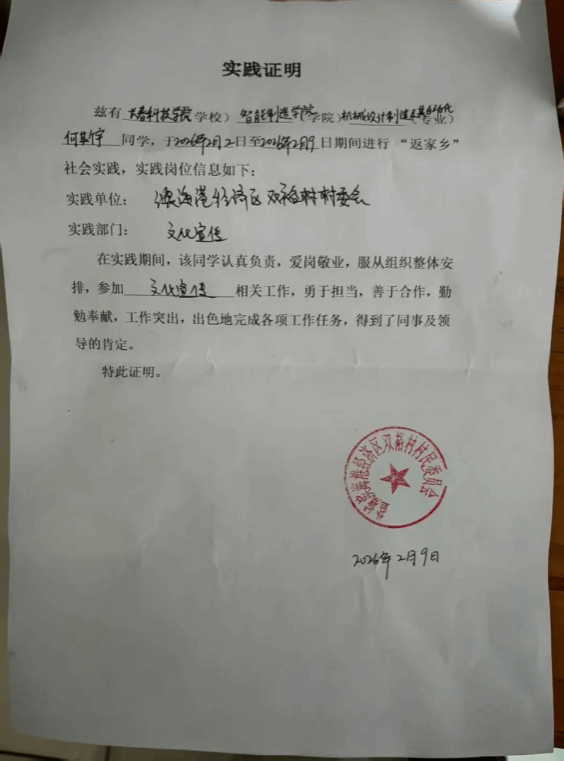 实践证明
兹有 长春科技学院 学校） 智能制造学院 学院）机械设计制造及其自动化（专业）
何其宇 同学，于2026年2月2日至2026年2月9日期间进行“返家乡”
社会实践，实践岗位信息如下：
实践单位： 滨海港经济区双裕村村委会
实践部门： 文化宣传
在实践期间，该同学认真负责，爱岗敬业，服从组织整体安
排，参加 文化宣传 相关工作，勇于担当，善于合作，勤
勉奉献，工作突出，出色地完成各项工作任务，得到了同事及领
导的肯定。
特此证明。
滨海港经济区双裕村村民委员会
2026年2月9日